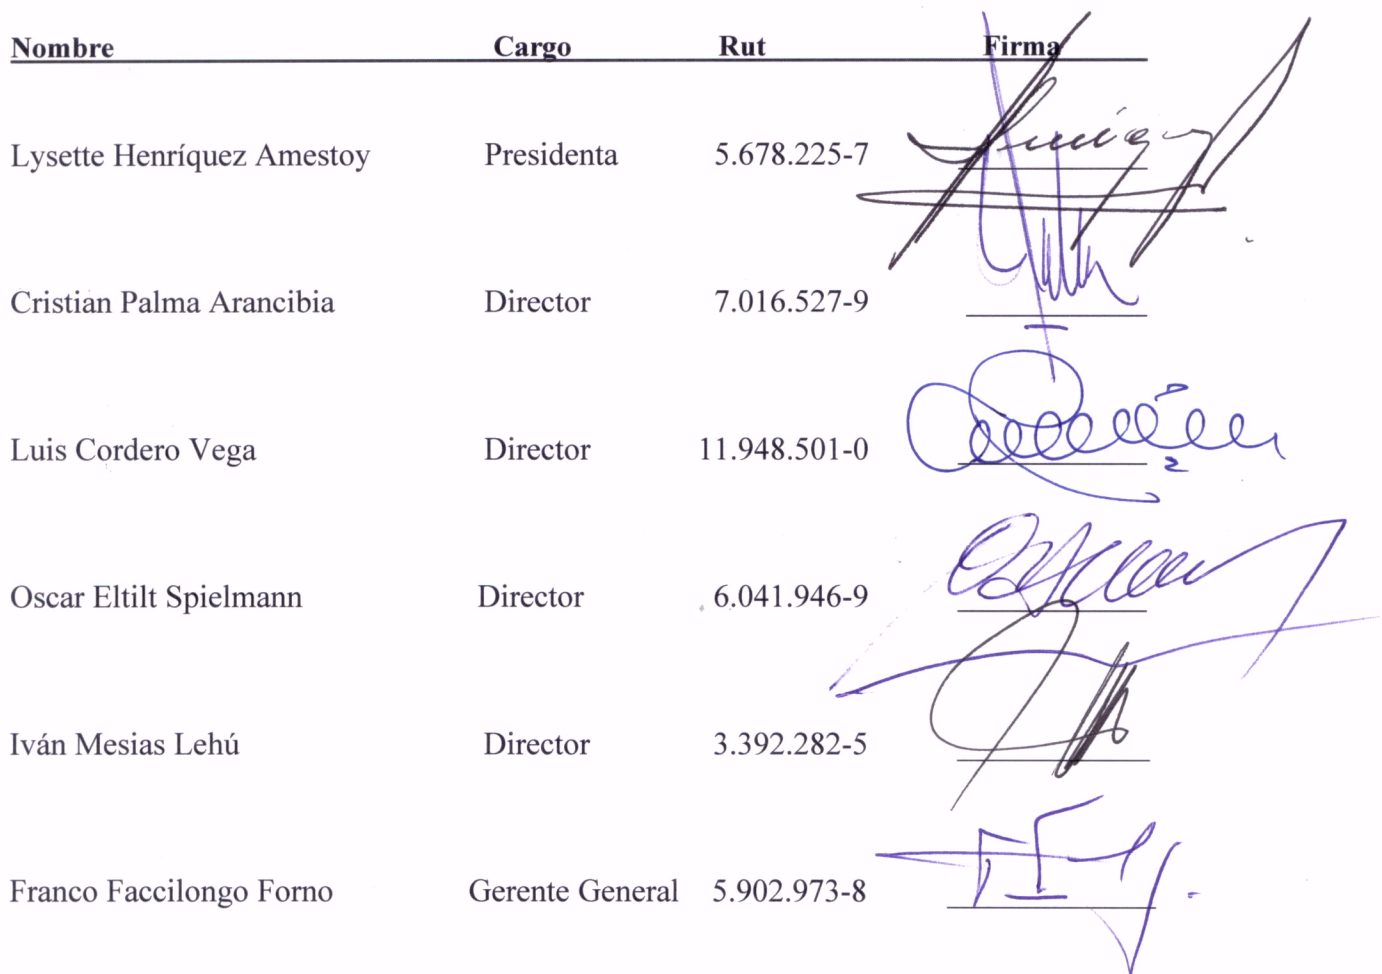 Nombre Cargo Rut Firma
Lysette Henríquez Amestoy Presidenta 5.678.225-7
Cristian Palma Arancibia Director 7.016.527-9
Luis Cordero Vega Director 11.948.501-0
Oscar Eltilt Spielmann Director 6.041.946-9
Iván Mesias Lehú Director 3.392.282-5
Franco Faccilongo Forno Gerente General 5.902.973-8